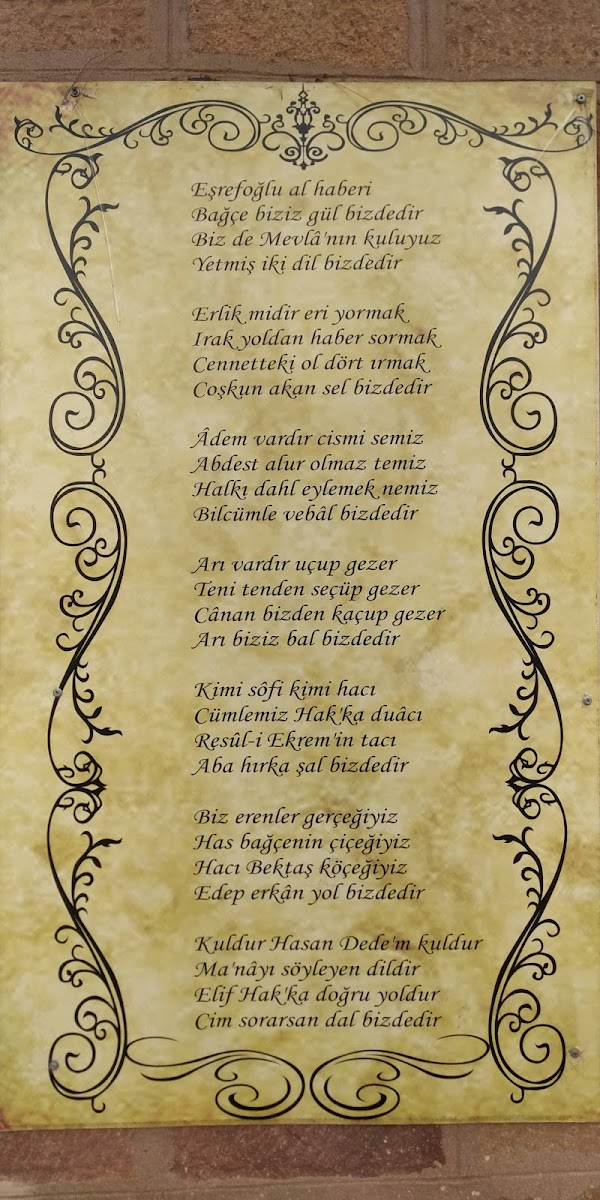 Eşrefoğlu al haberi
Bağçe biziz gül bizdedir
Biz de Mevlâ'nın kuluyuz
Yetmiş iki dil bizdedir
Erlik midir eri yormak
Irak yoldan haber sormak
Cennetteki ol dört ırmak
Coşkun akan sel bizdedir
Âdem vardır cismi semiz
Abdest alur olmaz temiz
Halkı dahl eylemek nemiz
Bilcümle vebâl bizdedir
Arı vardır uçup gezer
Teni tenden seçüp gezer
Cânan bizden kaçup gezer
Arı biziz bal bizdedir
Kimi sôfi kimi hacı
Cümlemiz Hak'ka duâcı
Resûl-i Ekrem'in tacı
Aba hırka şal bizdedir
Biz erenler gerçeğiyiz
Has bağçenin çiçeğiyiz
Hacı Bektaş köçeğiyiz
Edep erkân yol bizdedir
Kuldur Hasan Dede'm kuldur
Ma'nâyı söyleyen dildir
Elif Hak'ka doğru yoldur
Cim sorarsan dal bizdedir